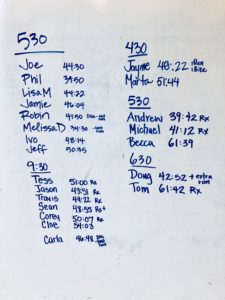 530
Joe 44:30
Phil 39:50
Lisa M 44:22
Jamie 46:04
Robin 41:50
Melissa D 34:30
Ivo 48:14
Jeff 50:35
9:30
Tess 51:00 Rx
Jason 43:51 Rx
Travis 44:22 Rx
Sean 48:55 Rx+
Corey 50:07 Rx
Cloe 54:03
Carla 46:48
430
Jayme 40:22 1 Run 1 Bike
Marta 51:44
530
Andrew 39:42 Rx
Michael 41:12 Rx
Becca 61:39
630
Doug 42:52 + extra run
Tom 61:42 Rx